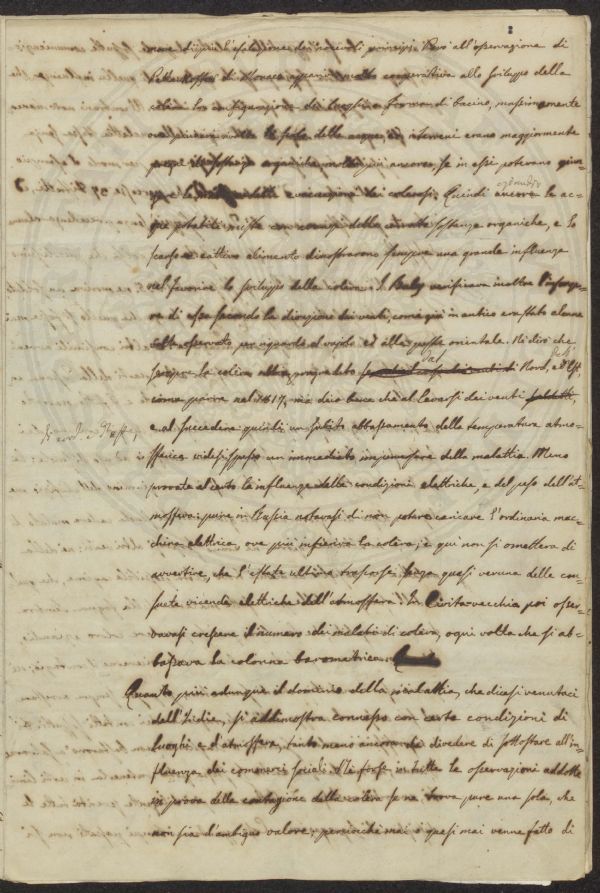 nare dispersi l'esalazione de' nocenti principj. Però all'osservazione di
Pettenkoffer di Monaco apparì molto cooperativa allo sviluppo della
colera la configurazione de' luoghi a forma di bacino, massimamente
ove
delle acque, terreni erano maggiormente
organiche, molto più ancora, se in essi potevano giun-
gere le evacuazioni dei colerosi. Quindi ancora le ac-
eziandio
que potabili miste con sostanze organiche, e lo
scarso e cattivo alimento dimostrarono sempre una grande influenza
nel favorire lo sviluppo della colera. S. Baly verificava inoltre l'insorge-
re di essa secondo la direzione dei venti, come già in antico era stato alcuna
volta osservato per riguardo al vajolo ed alla peste orientale. Nè dirò che
sempre la colera abbia progredito dal Nord, e d'Est,
come parve nel 1817, ma dirò bene che al levarsi dei venti
di nord e d'est,
e al succedere quindi un subito abbassamento della temperatura atmo-
sferica videsi spesso un immediato imperversare della malattia. Meno
provata al certo la influenza delle condizioni elettriche, e del peso dell'at-
mosfera: pure in Russia notavasi di non potere caricare l'ordinaria mac-
china elettrica, ove più infieriva la colera; e qui non si ometterà di
avvertire, che l'estate ultima trascorse senza quasi veruna delle con-
suete vicende elettriche dell'atmosfera. In Civita-vecchia poi osser-
vavasi crescere il numero dei malati di colera, ogni volta che si ab-
bassava la colonna barometrica.
Quanto più adunque il dominio della malattia, che dicesi venutaci
dall'India, si addimostra connesso con certe condizioni di
luoghi e d'atmosfera, tanto meno ancora dà divedere di sottostare all'in-
fluenza dei commerci sociali. Nè forse in tutte le osservazioni addotte
in prova della contagione della colera se ne trova pure una sola, che
non sia d'ambiguo valore; perciocchè mai o quasi mai venne fatto di